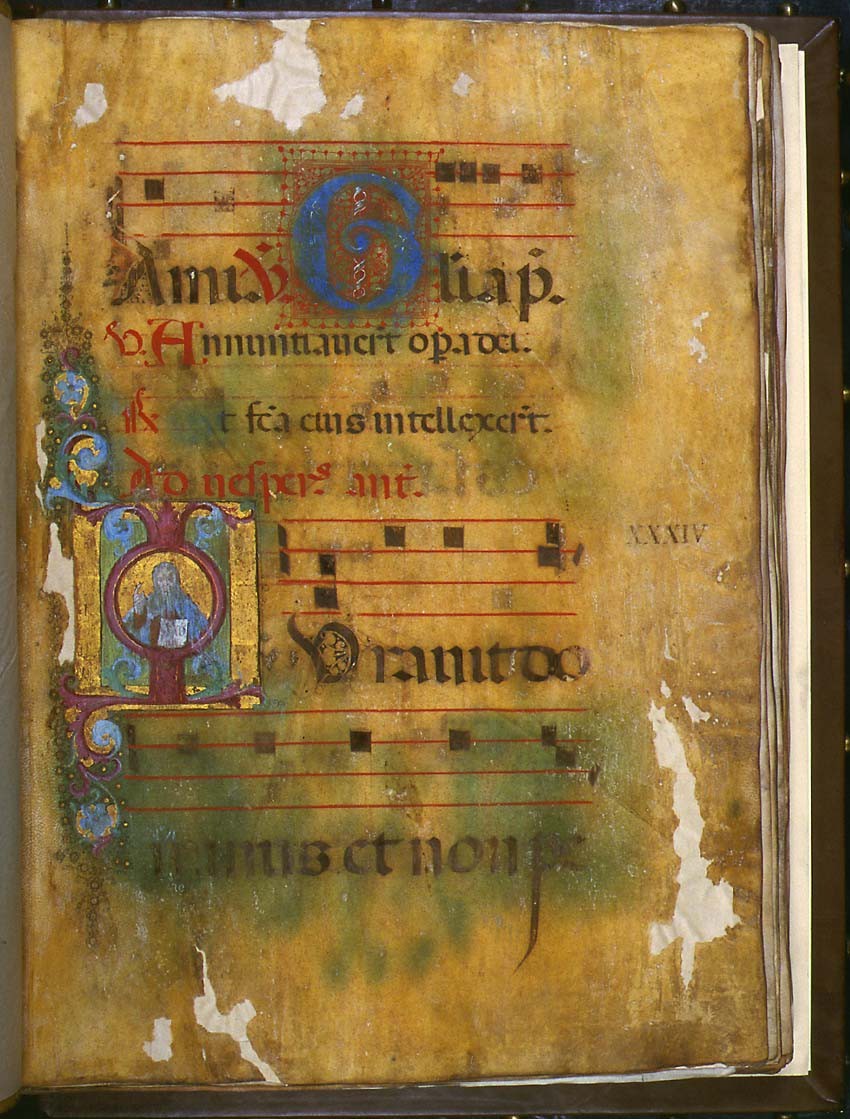 Ami. V. Glia p̄.
V. Annuntiauert op̄a dei.
R Et fc̄a eius intellexer̄t.
Ad uesper⁹ ant̄.
XXXIV
IVrauit do
minus et non pe